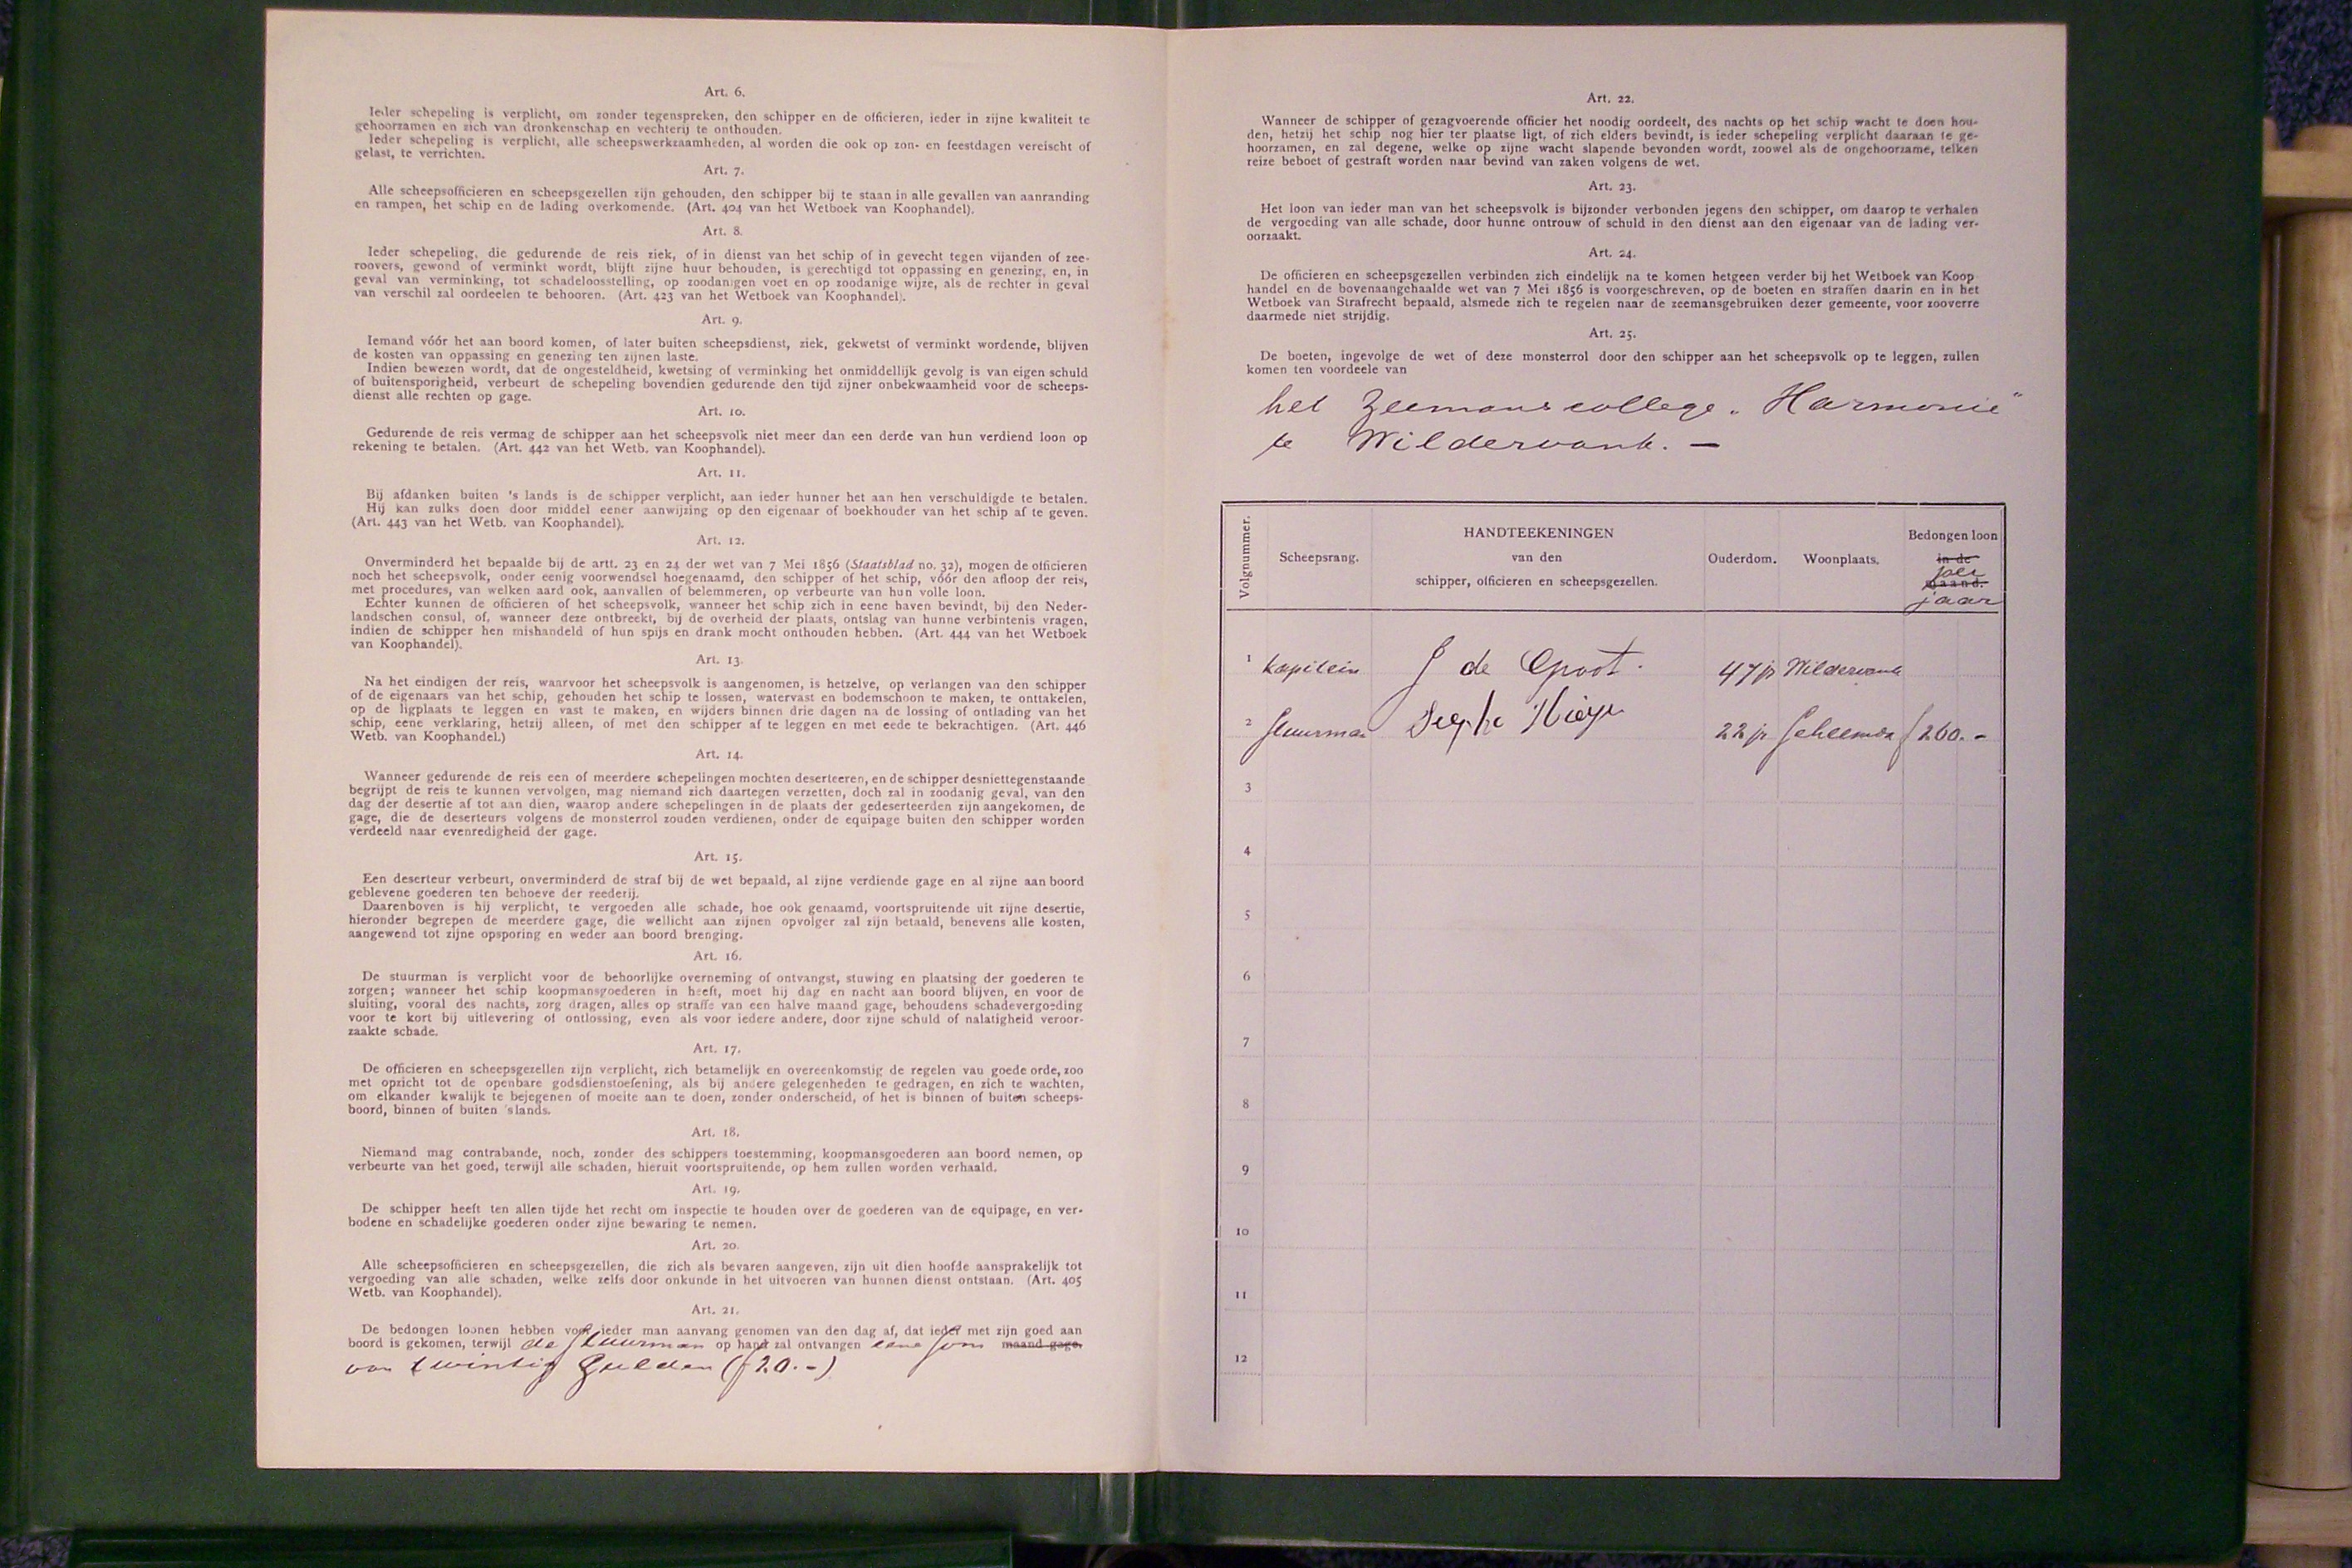 Art. 6.
Ieder schepeling is verplicht, om zonder tegenspreken, den schipper en de officieren, ieder in zijne kwaliteit te
gehoorzamen en zich van dronkenschap en vechterij te onthouden.
Ieder schepeling is verplicht, alle scheepswerkzaamheden, al worden die ook op zon- en feestdagen vereischt of
gelast, te verrichten.
Art. 7.
Alle scheepsofficieren en scheepsgezellen zijn gehouden, den schipper bij te staan in alle gevallen van aanranding
en rampen, het schip en de lading overkomende. (Art. 404 van het Wetboek van Koophandel).
Art. 8.
Ieder schepeling, die gedurende de reis ziek, of in dienst van het schip of in gevecht tegen vijanden of zee-
roovers, gewond of verminkt wordt, blijft zijne huur behouden, is gerechtigd tot oppassing en genezing, en, in
geval van verminking, tot schadeloosstelling, op zoodanigen voet en op zoodanige wijze, als de rechter in geval
van verschil zal oordeelen te behooren. (Art. 423 van het Wetboek van Koophandel).
Art. 9.
Iemand vóór het aan boord komen, of later buiten scheepsdienst, ziek, gekwetst of verminkt wordende, blijven
de kosten van oppassing en genezing ten zijnen laste.
Indien bewezen wordt, dat de ongesteldheid, kwetsing of verminking het onmiddellijk gevolg is van eigen schuld
of buitensporigheid, verbeurt de schepeling bovendien gedurende den tijd zijner onbekwaamheid voor de scheeps-
dienst alle rechten op gage.
Art. 10.
Gedurende de reis vermag de schipper aan het scheepsvolk niet meer dan een derde van hun verdiend loon op
rekening te betalen. (Art. 442 van het Wetb. van Koophandel).
Art. 11.
Bij afdanken buiten 's lands is de schipper verplicht, aan ieder hunner het aan hen verschuldigde te betalen.
Hij kan zulks doen door middel eener aanwijzing op den eigenaar of boekhouder van het schip af te geven.
(Art. 443 van het Wetb. van Koophandel).
Art. 12.
Onverminderd het bepaalde bij de artt. 23 en 24 der wet van 7 Mei 1856 (Staatsblad no. 32), mogen de officieren
noch het scheepsvolk, onder eenig voorwendsel hoegenaamd, den schipper of het schip, vóór den afloop der reis,
met procedures, van welken aard ook, aanvallen of belemmeren, op verbeurte van hun volle loon.
Echter kunnen de officieren of het scheepsvolk, wanneer het schip zich in eene haven bevindt, bij den Neder-
landschen consul, of, wanneer deze ontbreekt, bij de overheid der plaats, ontslag van hunne verbintenis vragen,
indien de schipper hen mishandeld of hun spijs en drank mocht onthouden hebben. (Art. 444 van het Wetboek
van Koophandel).
Art. 13.
Na het eindigen der reis, waarvoor het scheepsvolk is aangenomen, is hetzelve, op verlangen van den schipper
of de eigenaars van het schip, gehouden het schip te lossen, watervast en bodemschoon te maken, te onttakelen,
op de ligplaats te leggen en vast te maken, en wijders binnen drie dagen na de lossing of ontlading van het
schip, eene verklaring, hetzij alleen, of met den schipper af te leggen en met eede te bekrachtigen. (Art. 446
Wetb. van Koophandel.)
Art. 14.
Wanneer gedurende de reis een of meerdere schepelingen mochten deserteeren, en de schipper desniettegenstaande
begrijpt de reis te kunnen vervolgen, mag niemand zich daartegen verzetten, doch zal in zoodanig geval, van den
dag der desertie af tot aan dien, waarop andere schepelingen in de plaats der gedeserteerden zijn aangekomen, de
gage, die de deserteurs volgens de monsterrol zouden verdienen, onder de equipage buiten den schipper worden
verdeeld naar evenredigheid der gage.
Art. 15.
Een deserteur verbeurt, onverminderd de straf bij de wet bepaald, al zijne verdiende gage en al zijne aan boord
geblevene goederen ten behoeve der reederij.
Daarenboven is hij verplicht, te vergoeden alle schade, hoe ook genaamd, voortspruitende uit zijne desertie,
hieronder begrepen de meerdere gage, die wellicht aan zijnen opvolger zal zijn betaald, benevens alle kosten,
aangewend tot zijne opsporing en weder aan boord brenging.
Art. 16.
De stuurman is verplicht voor de behoorlijke overneming of ontvangst, stuwing en plaatsing der goederen te
zorgen; wanneer het schip koopmansgoederen in heeft, moet hij dag en nacht aan boord blijven, en voor de
sluiting, vooral des nachts, zorg dragen, alles op straffe van een halve maand gage, behoudens schadevergoeding
voor te kort bij uitlevering of ontlossing, even als voor iedere andere, door zijne schuld of nalatigheid veroor-
zaakte schade.
Art. 17.
De officieren en scheepsgezellen zijn verplicht, zich betamelijk en overeenkomstig de regelen van goede orde, zoo
met opzicht tot de openbare godsdienstoefening, als bij andere gelegenheden te gedragen, en zich te wachten,
om elkander kwalijk te bejegenen of moeite aan te doen, zonder onderscheid, of het is binnen of buiten scheeps-
boord, binnen of buiten 'slands.
Art. 18.
Niemand mag contrabande, noch, zonder des schippers toestemming, koopmansgoederen aan boord nemen, op
verbeurte van het goed, terwijl alle schaden, hieruit voortspruitende, op hem zullen worden verhaald.
Art. 19.
De schipper heeft ten allen tijde het recht om inspectie te houden over de goederen van de equipage, en ver-
bodene en schadelijke goederen onder zijne bewaring te nemen.
Art. 20.
Alle scheepsofficieren en scheepsgezellen, die zich als bevaren aangeven, zijn uit dien hoofde aansprakelijk tot
vergoeding van alle schaden, welke zelfs door onkunde in het uitvoeren van hunnen dienst ontstaan. (Art. 405
Wetb. van Koophandel).
Art. 21.
De bedongen loonen hebben voor ieder man aanvang genomen van den dag af, dat ieder met zijn goed aan
boord is gekomen, terwijl de stuurman op hand zal ontvangen eene som maand gage.
van twintig Gulden (f 20.-)
Art. 22.
Wanneer de schipper of gezagvoerende officier het noodig oordeelt, des nachts op het schip wacht te doen hou-
den, hetzij het schip nog hier ter plaatse ligt, of zich elders bevindt, is ieder schepeling verplicht daaraan te ge-
hoorzamen, en zal degene, welke op zijne wacht slapende bevonden wordt, zoowel als de ongehoorzame, telken
reize beboet of gestraft worden naar bevind van zaken volgens de wet.
Art. 23.
Het loon van ieder man van het scheepsvolk is bijzonder verbonden jegens den schipper, om daarop te verhalen
de vergoeding van alle schade, door hunne ontrouw of schuld in den dienst aan den eigenaar van de lading ver-
oorzaakt.
Art. 24.
De officieren en scheepsgezellen verbinden zich eindelijk na te komen hetgeen verder bij het Wetboek van Koop
handel en de bovenaangehaalde wet van 7 Mei 1856 is voorgeschreven, op de boeten en straffen daarin en in het
Wetboek van Strafrecht bepaald, alsmede zich te regelen naar de zeemansgebruiken dezer gemeente, voor zooverre
daarmede niet strijdig.
Art. 25.
De boeten, ingevolge de wet of deze monsterrol door den schipper aan het scheepsvolk op te leggen, zullen
komen ten voordeele van
het Zeemanscollege "Harmonie"
te Wildervank. —
Volgnummer.
Scheepsrang.
HANDTEEKENINGEN
van den
schipper, officieren en scheepsgezellen.
Ouderdom.
Woonplaats.
Bedongen loon
in de
per
maand.
jaar
1 Kapitein J de Groot. 47 jr Wildervank
2 Stuurman 22 jr Scheemda f 260.-
3
4
5
6
7
8
9
10
11
12